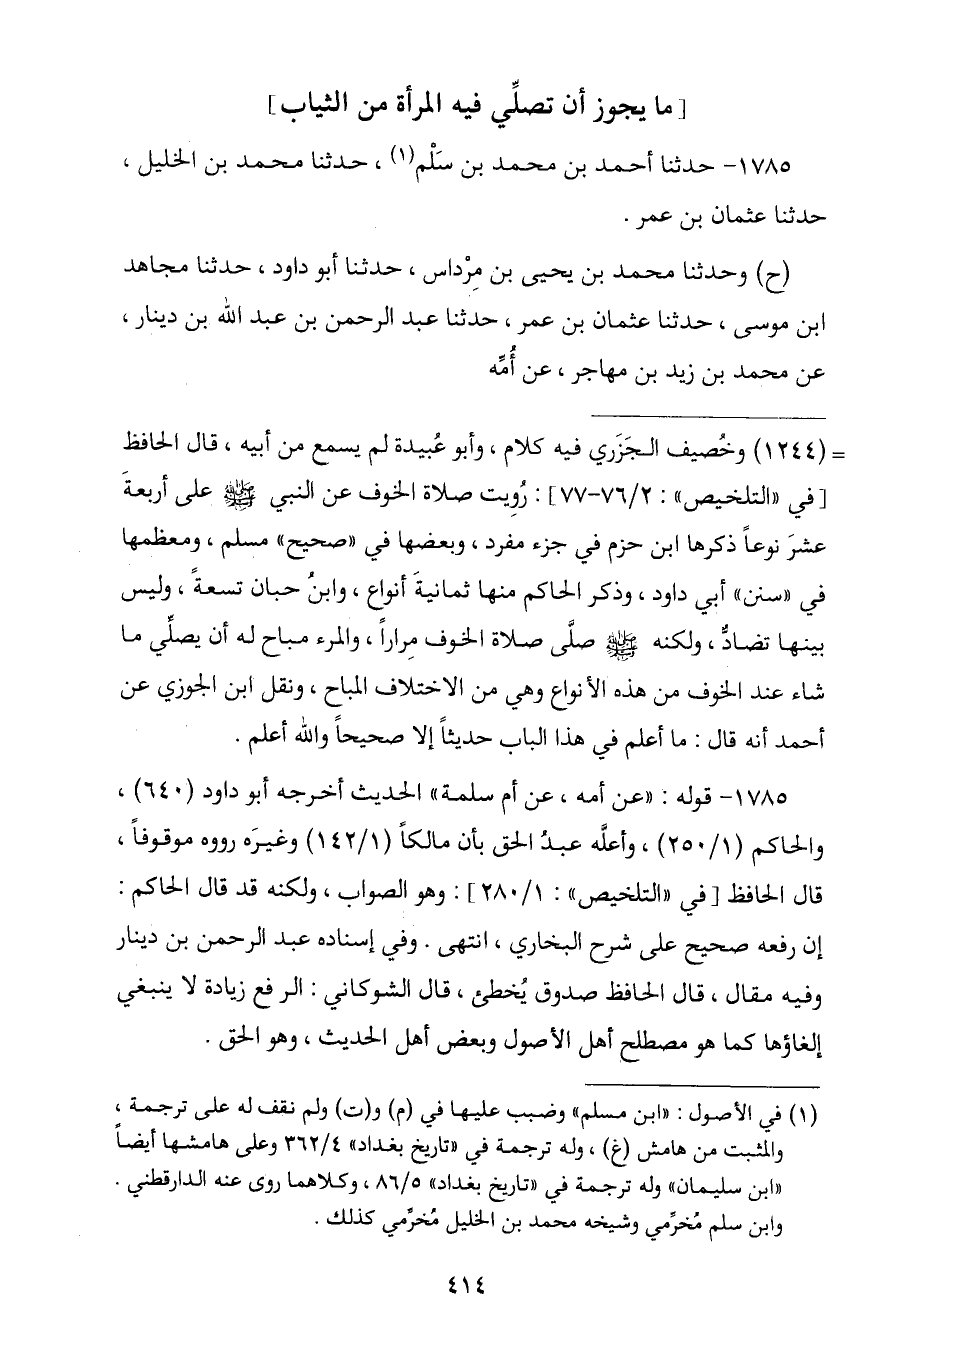 [ ما يجوز أن تصلِّي فيه المرأة من الثياب ]
١٧٨٥- حدثنا أحمد بن محمد بن سَلْم(١) ، حدثنا محمد بن الخليل ،
حدثنا عثمان بن عمر .
(ح) وحدثنا محمد بن يحيى بن مِرْداس ، حدثنا أبو داود ، حدثنا مجاهد
ابن موسى ، حدثنا عثمان بن عمر ، حدثنا عبد الرحمن بن عبد الله بن دينار ،
عن محمد بن زيد بن مهاجر ، عن أُمِّه
= (١٢٤٤) وخُصيف الجَزَري فيه كلام ، وأبو عُبيدة لم يسمع من أبيه ، قال الحافظ
[في «التلخيص» : ٧٦/٢-٧٧] : رُوِيت صلاة الخوف عن النبي ﷺ على أربعةَ
عشرَ نوعاً ذكرها ابن حزم في جزء مفرد ، وبعضها في «صحيح» مسلم ، ومعظمها
في «سنن» أبي داود ، وذكر الحاكم منها ثمانيةَ أنواع ، وابنُ حبان تسعةً ، وليس
بينها تضادٌّ ، ولكنه ﷺ صلَّى صلاة الخوف مِراراً ، والمرء مباح له أن يصلِّي ما
شاء عند الخوف من هذه الأنواع وهي من الاختلاف المباح ، ونقل ابن الجوزي عن
أحمد أنه قال : ما أعلم في هذا الباب حديثاً إلا صحيحاً والله أعلم .
١٧٨٥- قوله : «عن أمه ، عن أم سلمة» الحديث أخرجه أبو داود (٦٤٠) ،
والحاكم (٢٥٠/١) ، وأعلَّه عبدُ الحق بأن مالكاً (١٤٢/١) وغيرَه رووه موقوفاً ،
قال الحافظ [في «التلخيص» : ٢٨٠/١] : وهو الصواب ، ولكنه قد قال الحاكم :
إن رفعه صحيح على شرح البخاري ، انتهى . وفي إسناده عبد الرحمن بن دينار
وفيه مقال ، قال الحافظ صدوق يُخطئ ، قال الشوكاني : الرفع زيادة لا ينبغي
إلغاؤها كما هو مصطلح أهل الأصول وبعض أهل الحديث ، وهو الحق .
(١) في الأصول : «ابن مسلم» وضبب عليها في (م) و(ت) ولم نقف له على ترجمة ،
والمثبت من هامش (غ) ، وله ترجمة في «تاريخ بغداد» ٣٦٢/٤ وعلى هامشها أيضاً
«ابن سليمان» وله ترجمة في «تاريخ بغداد» ٨٦/٥ ، وكلاهما روى عنه الدارقطني .
وابن سلم مُخرِّمي وشيخه محمد بن الخليل مُخرِّمي كذلك .
٤١٤